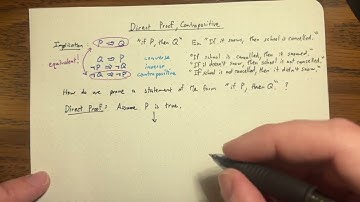 Direct Proof, Contrapositive
Implication: P ⇒ Q "if P, then Q" Ex: "If it snows, then school is cancelled."
equivalent! Q ⇒ P converse "If school is cancelled, then it snowed."
¬P ⇒ ¬Q inverse "If it doesn't snow, then school is not cancelled."
¬Q ⇒ ¬P contrapositive "If school is not cancelled, then it didn't snow."
How do we prove a statement of the form "if P, then Q"?
Direct Proof: Assume P is true.
↓